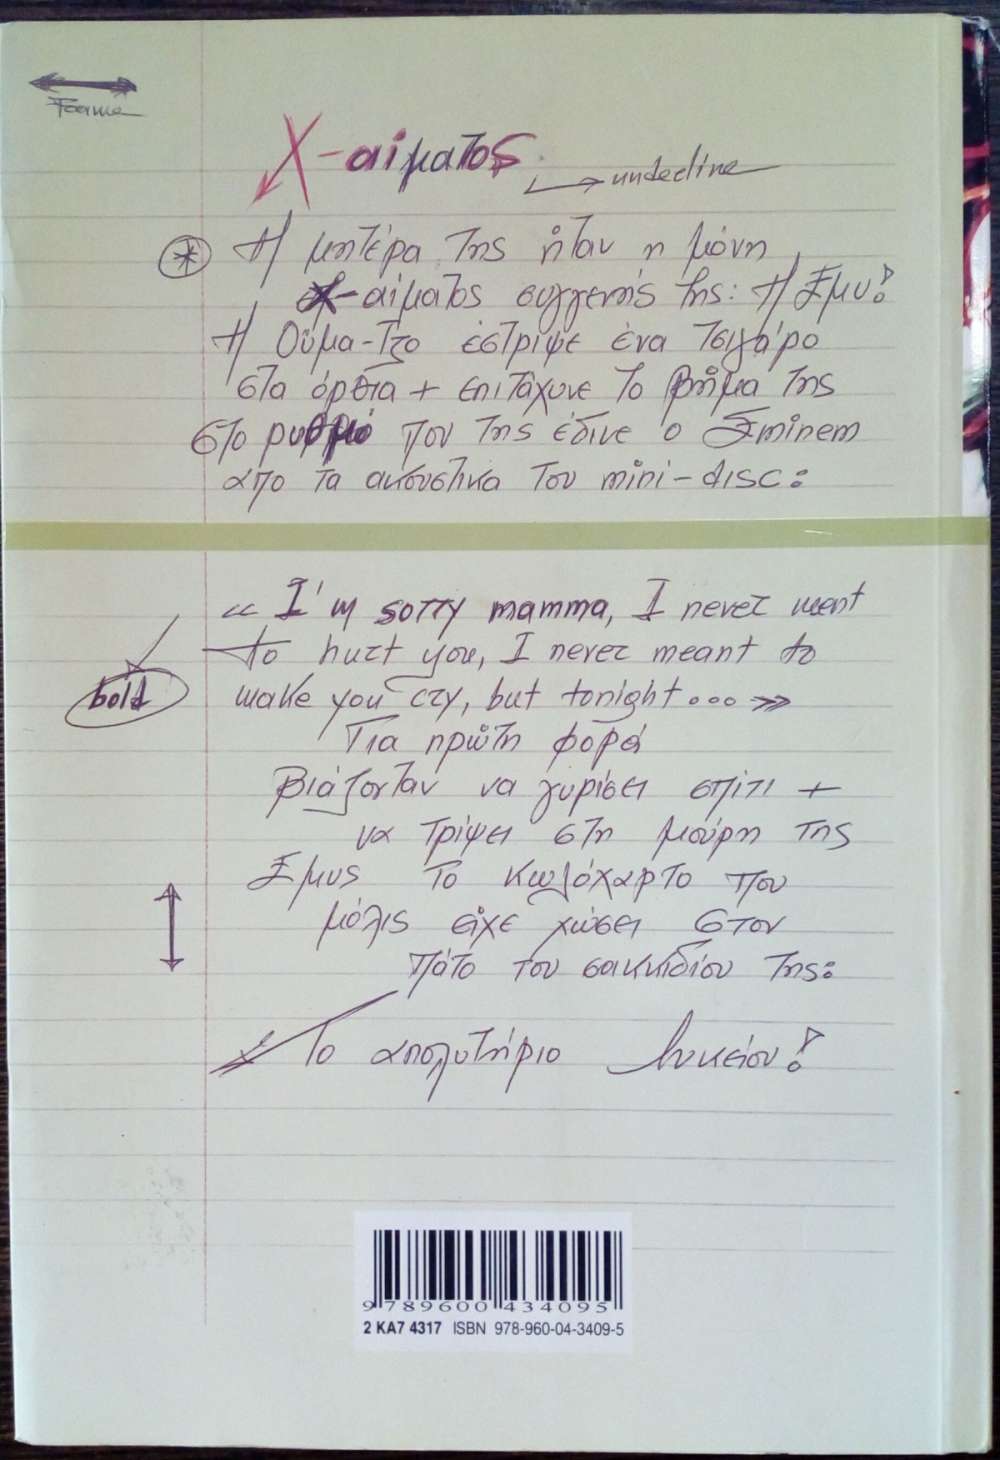 Frame
X-αίματος
underline
* Η μητέρα της ήταν η μόνη
εξ-αίματος συγγενής της: Η Έμυ!
Η Ούμα-Τζο έστριψε ένα τσιγάρο
στα όρθια + επιτάχυνε το βήμα της
στο ρυθμό που της έδινε ο Eminem
απο τα ακουστικά του mini-disc:
« I'm sorry mamma, I never ment
to hurt you, I never meant to
bold
make you cry, but tonight... »
Για πρώτη φορά
βιάζονταν να γυρίσει σπίτι +
να τρίψει στη μούρη της
Έμυς το κωλόχαρτο που
μόλις είχε χώσει στον
πάτο του σακκιδίου της:
Το απολυτήριο Λυκείου!
9 789600 434095
2 KA7 4317 ISBN 978-960-04-3409-5